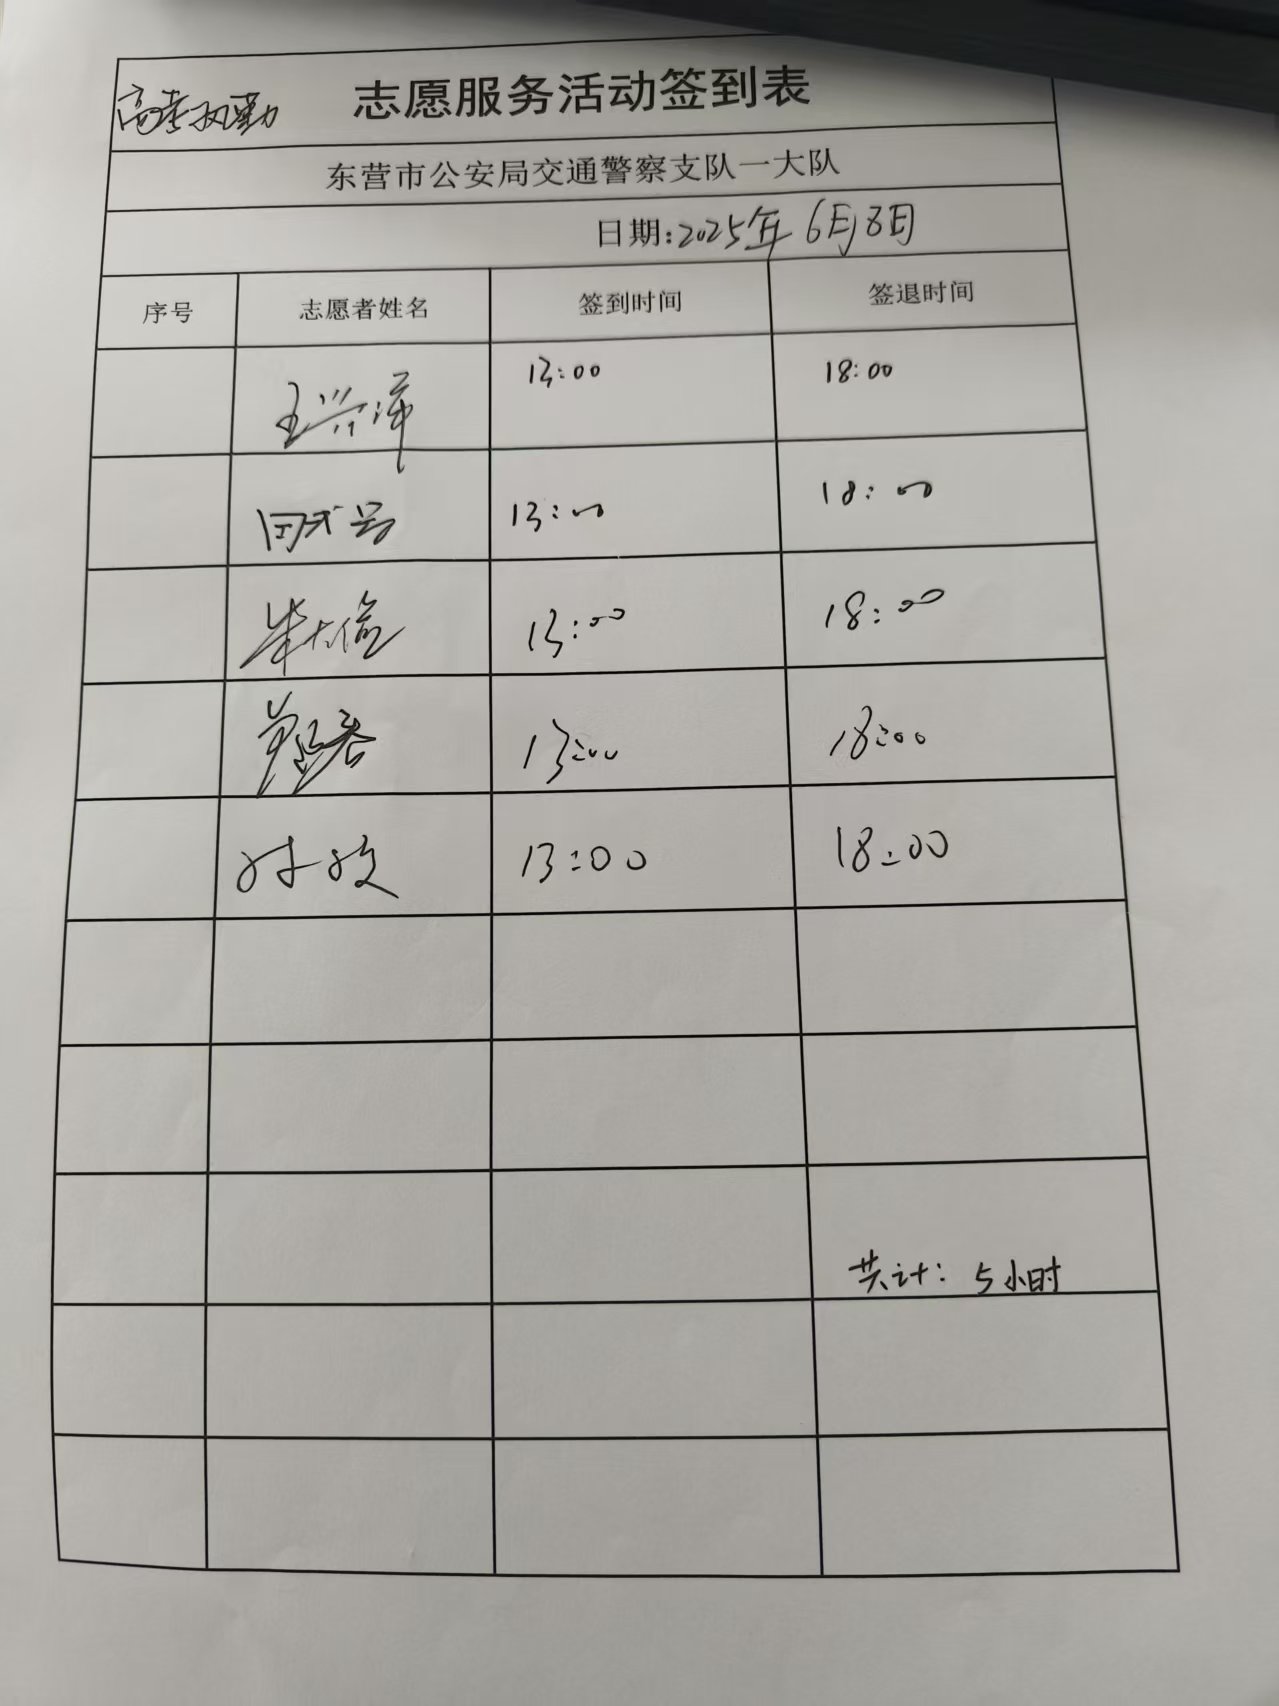 高考执勤 志愿服务活动签到表
东营市公安局交通警察支队一大队
日期:2025年6月8日
序号 志愿者姓名 签到时间 签退时间
王兴萍 13:00 18:00
13:00 18:00
13:00 18:00
13:00 18:00
13:00 18:00
共计: 5小时